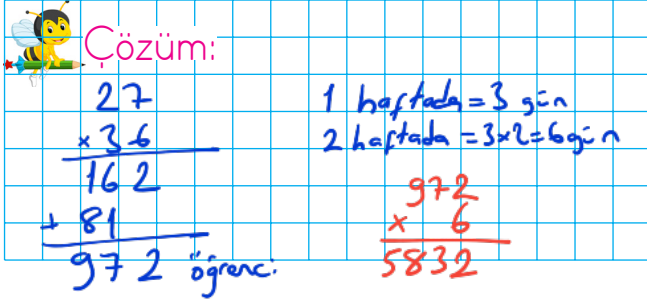 Çözüm:
27
x 36
162
+ 81
972 öğrenci
1 haftada = 3 gün
2 haftada = 3x2=6gün
972
x 6
5832